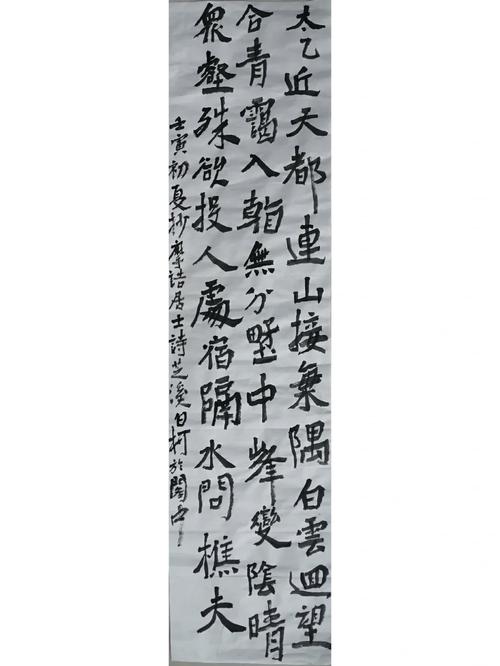 太乙近天都連山接隅白雲迴望
合青靄入無分墅中峯變陰晴
眾壑殊欲投人處宿隔水問樵夫
壬寅初夏抄摩詰居士詩芝溪白柯於閩中